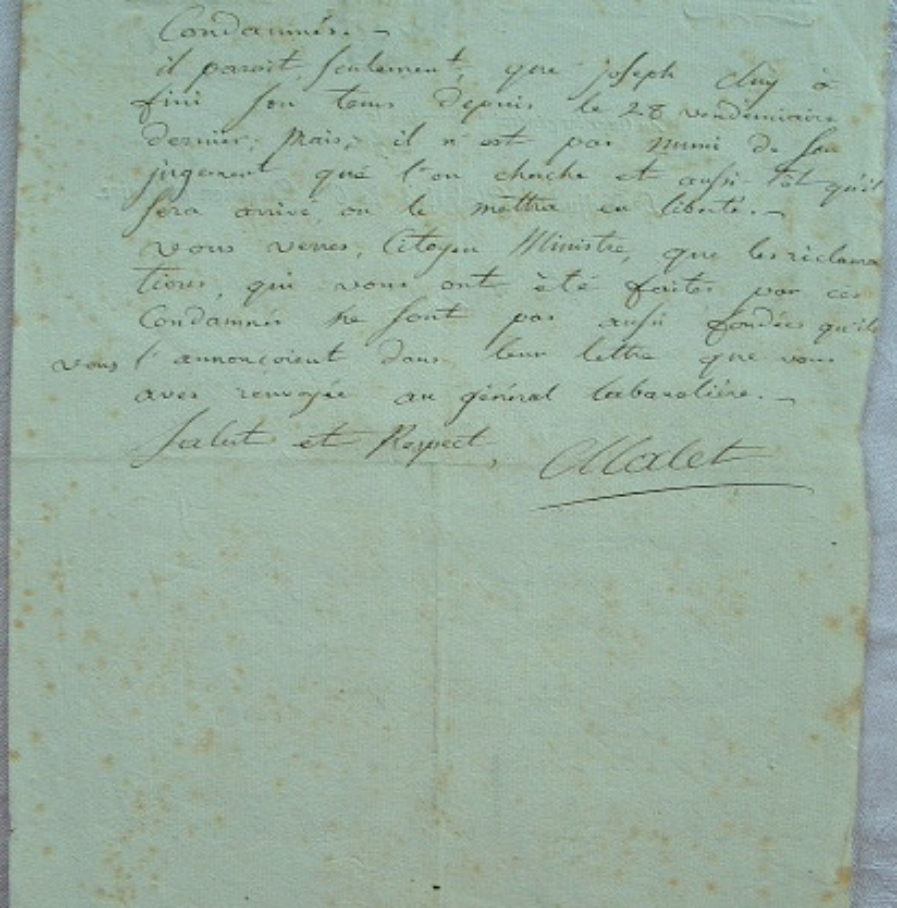 Condamnés. -
il paroit, seulement, que joseph Cluy à
fini son tems depuis le 28 vendemiaire
dernier, mais, il n'est pas muni de son
jugement que l'on cherche et aussi-tôt qu'il
sera arrivé, on le mettra en liberté. -
vous verres, Citoyen Ministre, que les réclama
tions, qui vous ont été faites par ces
Condamnés ne sont pas aussi fondées qu'ils
vous l'annonçoient dans leur lettre que vous
aves renvoyée au général labarolière. -
Salut et Respect,
Malet